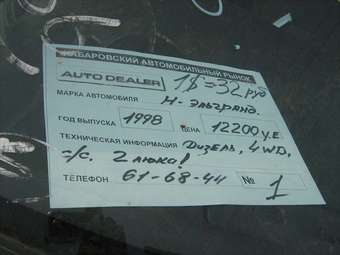 ХАБАРОВСКИЙ АВТОМОБИЛЬНЫЙ РЫНОК
AUTO DEALER 1$=32 руб
МАРКА АВТОМОБИЛЯ Н-Эльгранд.
ГОД ВЫПУСКА 1998 ЦЕНА 12200 у.е.
ТЕХНИЧЕСКАЯ ИНФОРМАЦИЯ Дизель, 4WD,
с/с. 2 люка!
ТЕЛЕФОН 61-68-44 № 1